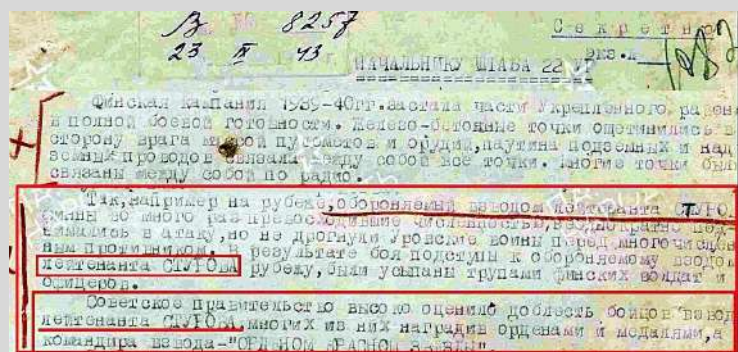 В 8257
Секретно
23 II 43
экз.
НАЧАЛЬНИКУ ШТАБА 22 УР
Финская кампания 1939-40гг.застала части Укрепленного район
в полной боевой готовности. Железо-бетонные точки ощетинились в
сторону врага массой пулеметов и орудий,паутина подземных и над
земных проводов связала между собой все точки. Многие точки был
связаны между собой по радио.
Так,например на рубеже,обороняемый взводом лейтенанта СТУРО
финны во много раз превосходившие численностью,неоднократно под
нимались в атаку,но не дрогнули Уровские воины перед многочислен
ным противником. В результате боя подступы к обороняемому взводом
лейтенанта СТУРОВА рубежу,были усыпаны трупами финских солдат и
офицеров.
Советское правительство высоко оценило доблесть бойцов взвод
лейтенанта СТУРОВА,многих из них наградив орденами и медалями,а
командира взвода-"ОРДЕНОМ КРАСНОЕ ЗНАМЯ".